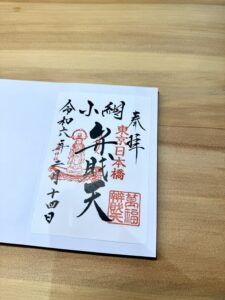 奉拝
東京日本橋
小網
弁財天
萬福
令和六年
月十四日